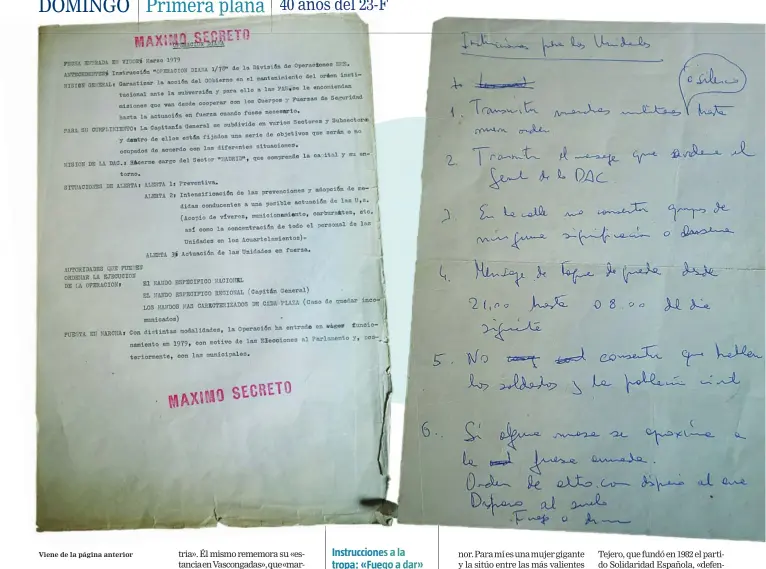 DOMINGO
Primera plana
40 años del 23-F
MAXIMO SECRETO
OPERACION DIANA
FECHA ENTRADA EN VIGOR: Marzo 1979
ANTECEDENTES: Instrucción "OPERACION DIANA 1/78" de la División de Operaciones EME.
MISION GENERAL: Garantizar la acción del Gobierno en el mantenimiento del orden insti-
tucional ante la subversión y para ello a las FAS, se le encomiendan
misiones que van desde cooperar con los Cuerpos y Fuerzas de Seguridad
hasta la actuación en fuerza cuando fuese necesario.
PARA SU CUMPLIMIENTO: La Capitanía General se subdivide en varios Sectores y Subsectores
y dentro de ellos están fijados una serie de objetivos que serán o no
ocupados de acuerdo con las diferentes situaciones.
MISION DE LA DAC.: Hacerse cargo del Sector "MADRID", que comprende la capital y su en-
torno.
SITUACIONES DE ALERTA: ALERTA 1: Preventiva.
ALERTA 2: Intensificación de las prevenciones y adopción de me-
didas conducentes a una posible actuación de las U,s.
(Acopio de víveres, municionamiento, carburantes, etc.
así como la concentración de todo el personal de las
Unidades en los Acuartelamientos)-
ALERTA 3: Actuación de las Unidades en fuerza.
AUTORIDADES QUE PUEDEN
ORDENAR LA EJECUCION
DE LA OPERACION:
EL MANDO ESPECIFICO NACIONAL
EL MANDO ESPECIFICO REGIONAL (Capitán General)
LOS MANDOS MAS CARACTERIZADOS DE CADA PLAZA (Caso de quedar inco-
municados)
PUESTA EN MARCHA: Con distintas modalidades, la Operación ha entrado en funcio-
namiento en 1979, con motivo de las Elecciones al Parlamento y, pos-
teriormente, con las municipales.
MAXIMO SECRETO
Instrucciones para las Unidades
o silencio
1. Transmitir marchas militares hasta
nueva orden
2. Transmitir el mensaje que ordene el
Genl de la DAC
3. En la calle no consentir grupos de
ninguna significación o
4. Mensaje de toque de queda desde
21,00 hasta 08.00 del día
siguiente
5. No consentir que hablen
los soldados y la población civil
6. Si alguna masa se aproxima a
la fuerza armada.
Orden de alto con disparo al aire
Disparo al suelo
Fuego a dar
Viene de la página anterior
tria». Él mismo rememora su «es-
tancia en Vascongadas», que «mar-
Instrucciones a la
tropa: «Fuego a dar»
nor. Para mí es una mujer gigante
y la sitúo entre las más valientes
Tejero, que fundó en 1982 el parti-
do Solidaridad Española, «defen-